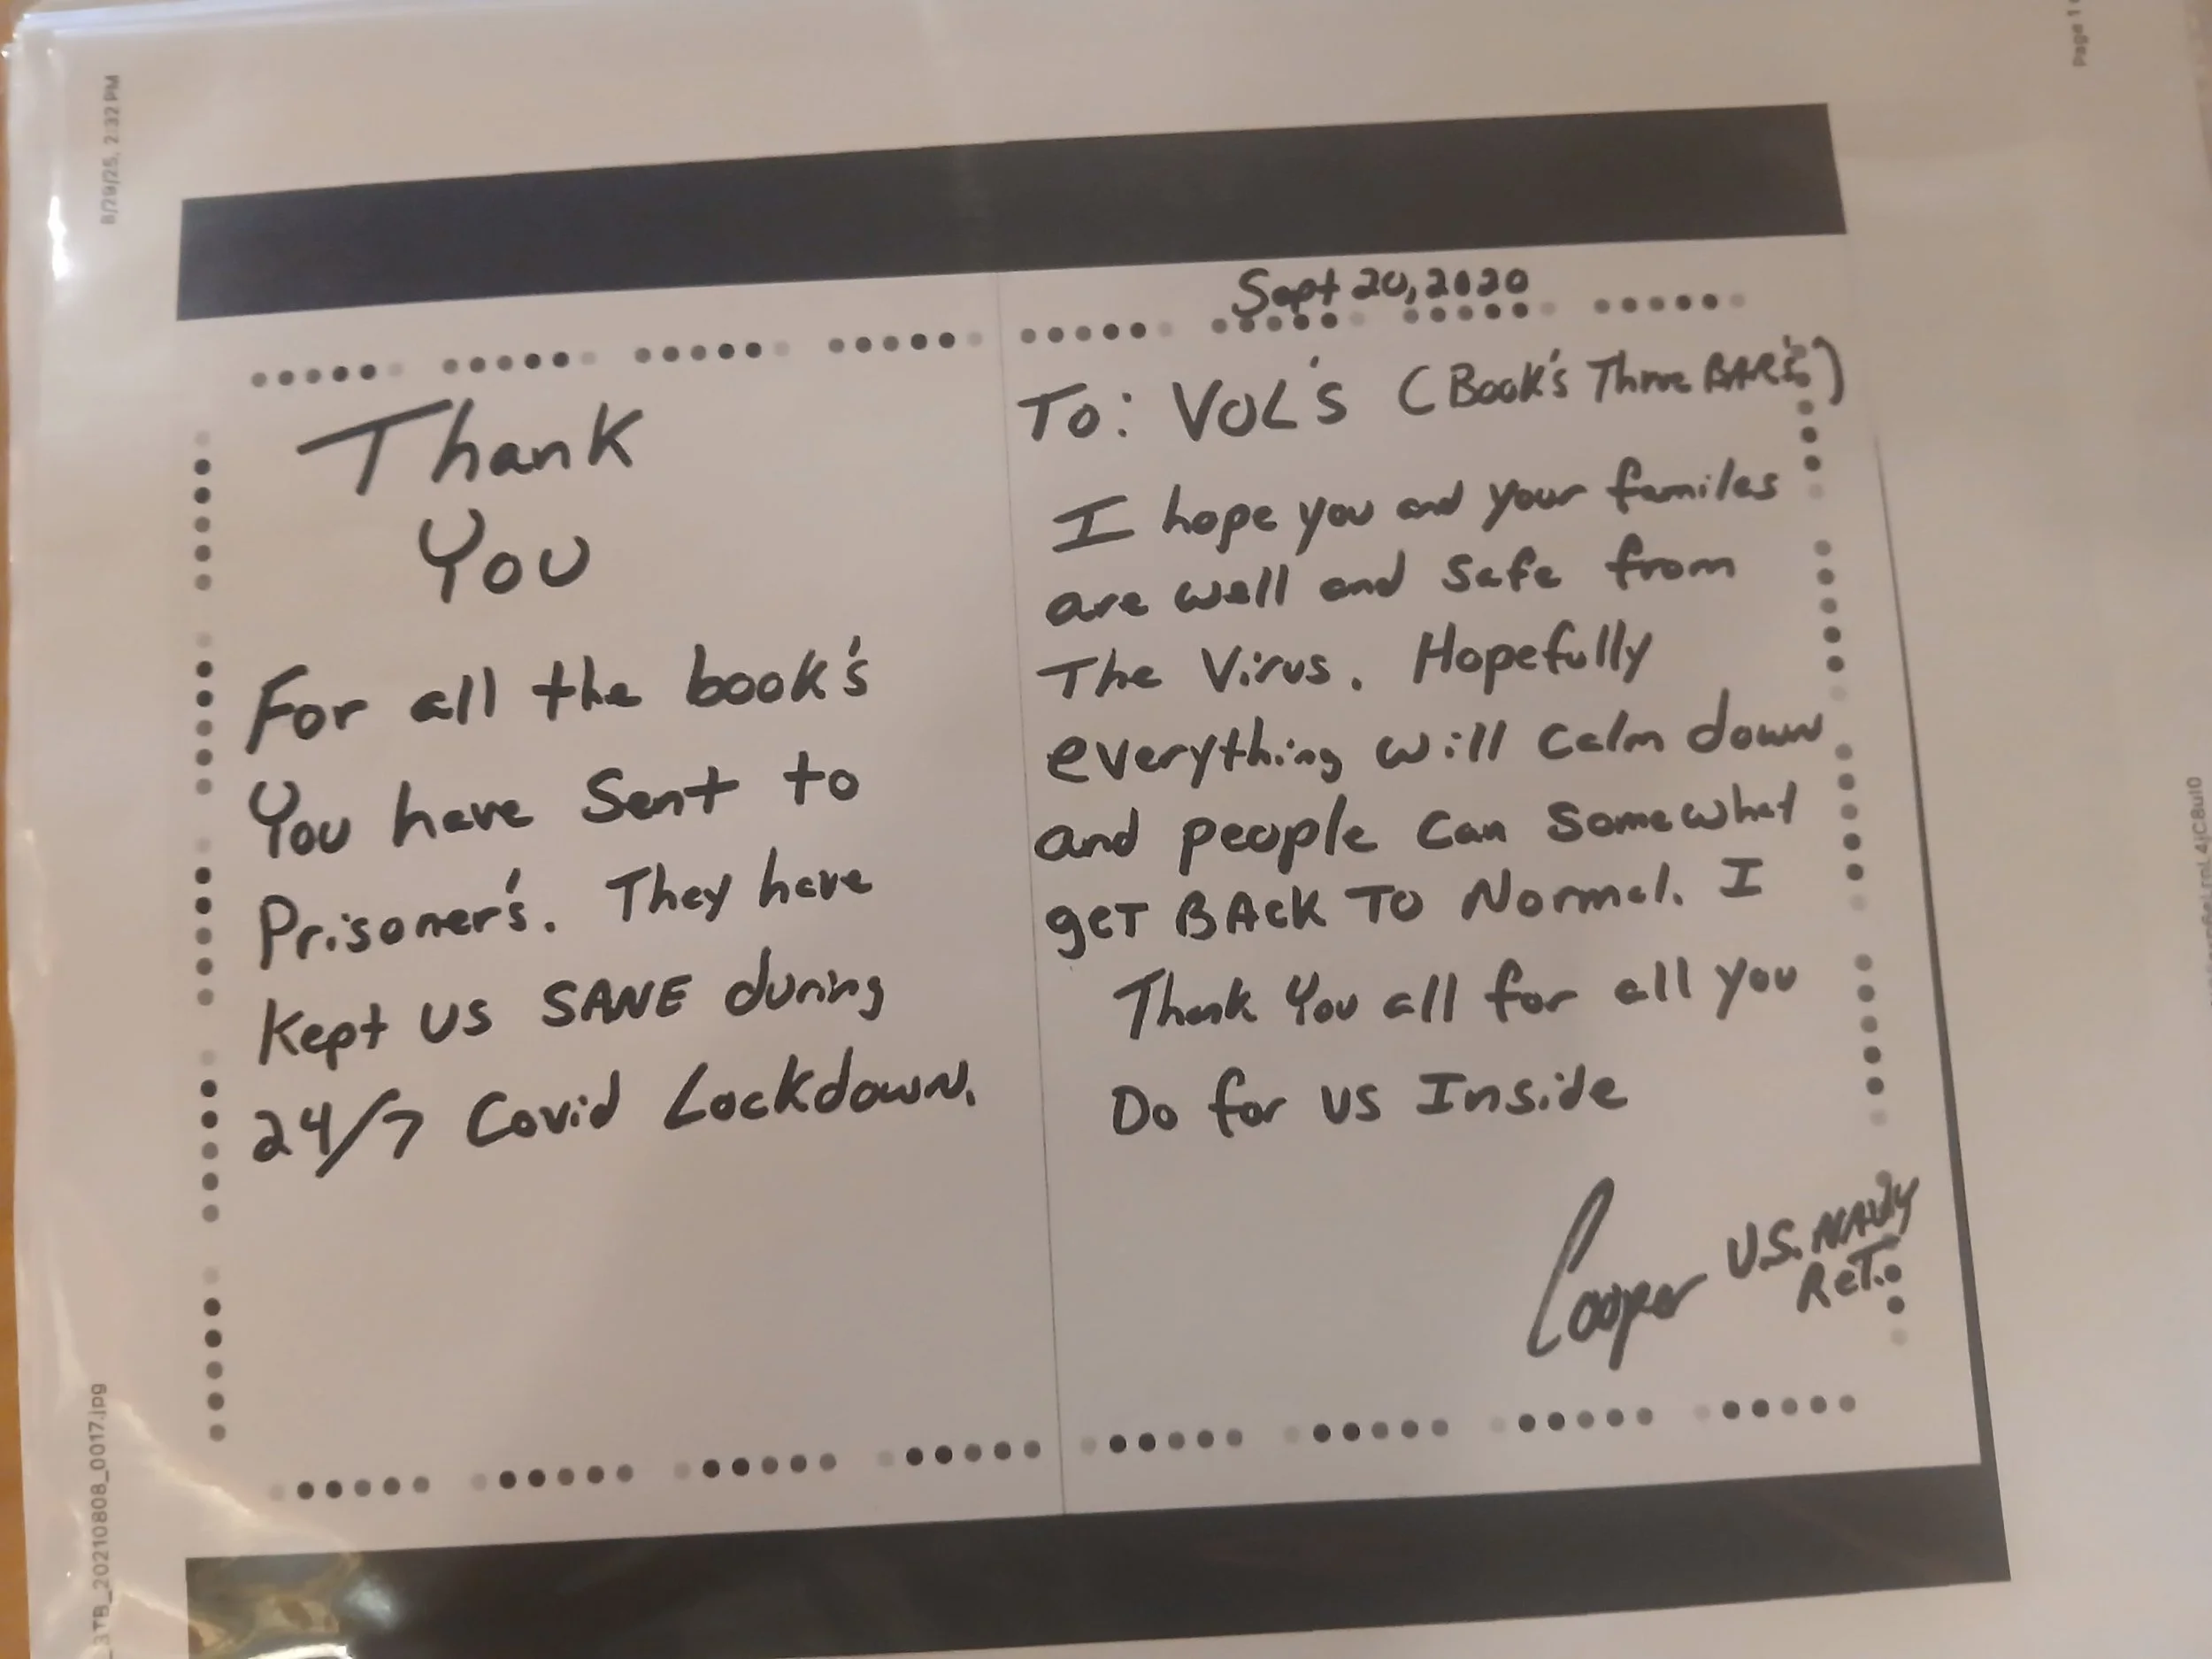 8/29/25, 2:32 PM
Page 1
Thank
You
For all the book's
You have Sent to
Prisoner's. They have
Kept US SANE during
24/7 Covid Lockdown.
Sept 20, 2020
To: VOL's (Book's Three BAR's)
I hope you and your familes
are well and safe from
The Virus. Hopefully
everything will calm down
and people can somewhat
get BACK TO Normal. I
Thank You all for all you
Do for us Inside
Cooper U.S. NAVY
RET.
_3TB_20210808_0017.jpg